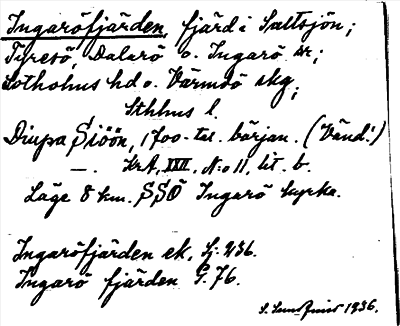 Ingaröfjärden, fjärd i Saltsjön;
Tyresö, Dalarö o. Ingarö sr;
Sotholms hd o. Värmdö skg;
Sthlms l.
Diupa Siöön, 1700-tal. börjain. (Vänd!)
—. KrA, XVII, N:o 11, lit. b.
Läge 8 km. SSO Ingarö kyrka.
Ingaröfjärden ek. Sj. 236.
Ingarö fjärden G. 76.
1936.